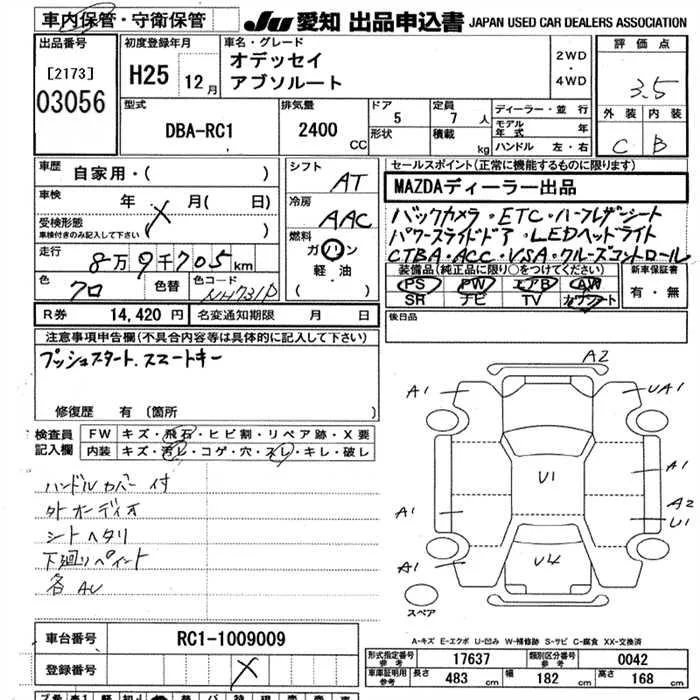 車内保管・守衛保管
JU 愛知 出品申込書 JAPAN USED CAR DEALERS ASSOCIATION
出品番号
[2173]
03056
初度登録年月
H25 12月
車名・グレード
オデッセイ
アブソルート
2WD
・
4WD
評価点
3.5
外装 内装
C B
型式
DBA-RC1
排気量
2400 CC
ドア
5
形状
定員
7 人
積載
kg
ディーラー・並行
モデル年式 年
ハンドル 左・右
車歴
自家用・( )
車検
年 月( 日)
受検形態
(車検付きのみ記入して下さい)
X
走行
8万9千705km
色
クロ
色替
色コード
NH731P
シフト
AT
冷房
AAC
燃料
ガソリン
軽・油
( )
セールスポイント(正常に機能するものに限ります)
MAZDAディーラー出品
バックカメラ・ETC・ハーフレザーシート
パワースライドドア・LEDヘッドライト
CTBA・ACC・VSA・クルーズコントロール
装備品(純正品に限り○をつけてください)
PS PW エアB AW
SR ナビ TV カワシート
新車保証書
有・無
R券 14,420円 名変通知期限 月 日
後日品
注意事項申告欄(不具合内容等は具体的に記入して下さい)
プッシュスタート.スマートキー
修復歴 有(箇所 )
検査員
記入欄
FW キズ・飛石・ヒビ割・リペア跡・X要
内装 キズ・汚レ・コゲ・穴・スレ・キレ・破レ
ハンドルカバー付
外オーディオ
シートヘタリ
下廻りペイント
各AU
A2
A1
UA1
A1
U1
A1
A2
U1
A1
U4
スペア
A-キズ E-エクボ U-凹み W-補修跡 S-サビ C-腐食 XX-交換済
車台番号 RC1-1009009
登録番号 X
形式指定番号
参考
17637
類別区分番号
参考
0042
車庫証明用
参考
長さ 483 cm
幅 182 cm
高さ 168 cm